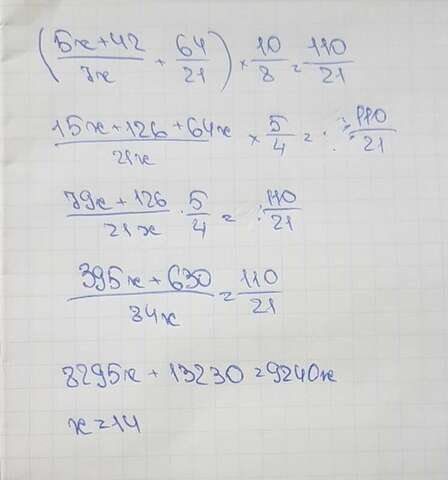 (5x+42/7x + 64/21) × 10/8 = 110/21
15x+126+64x/21x × 5/4 = 110/21
79x+126/21x · 5/4 = 110/21
395x+630/84x = 110/21
8295x + 13230 = 9240x
x=14